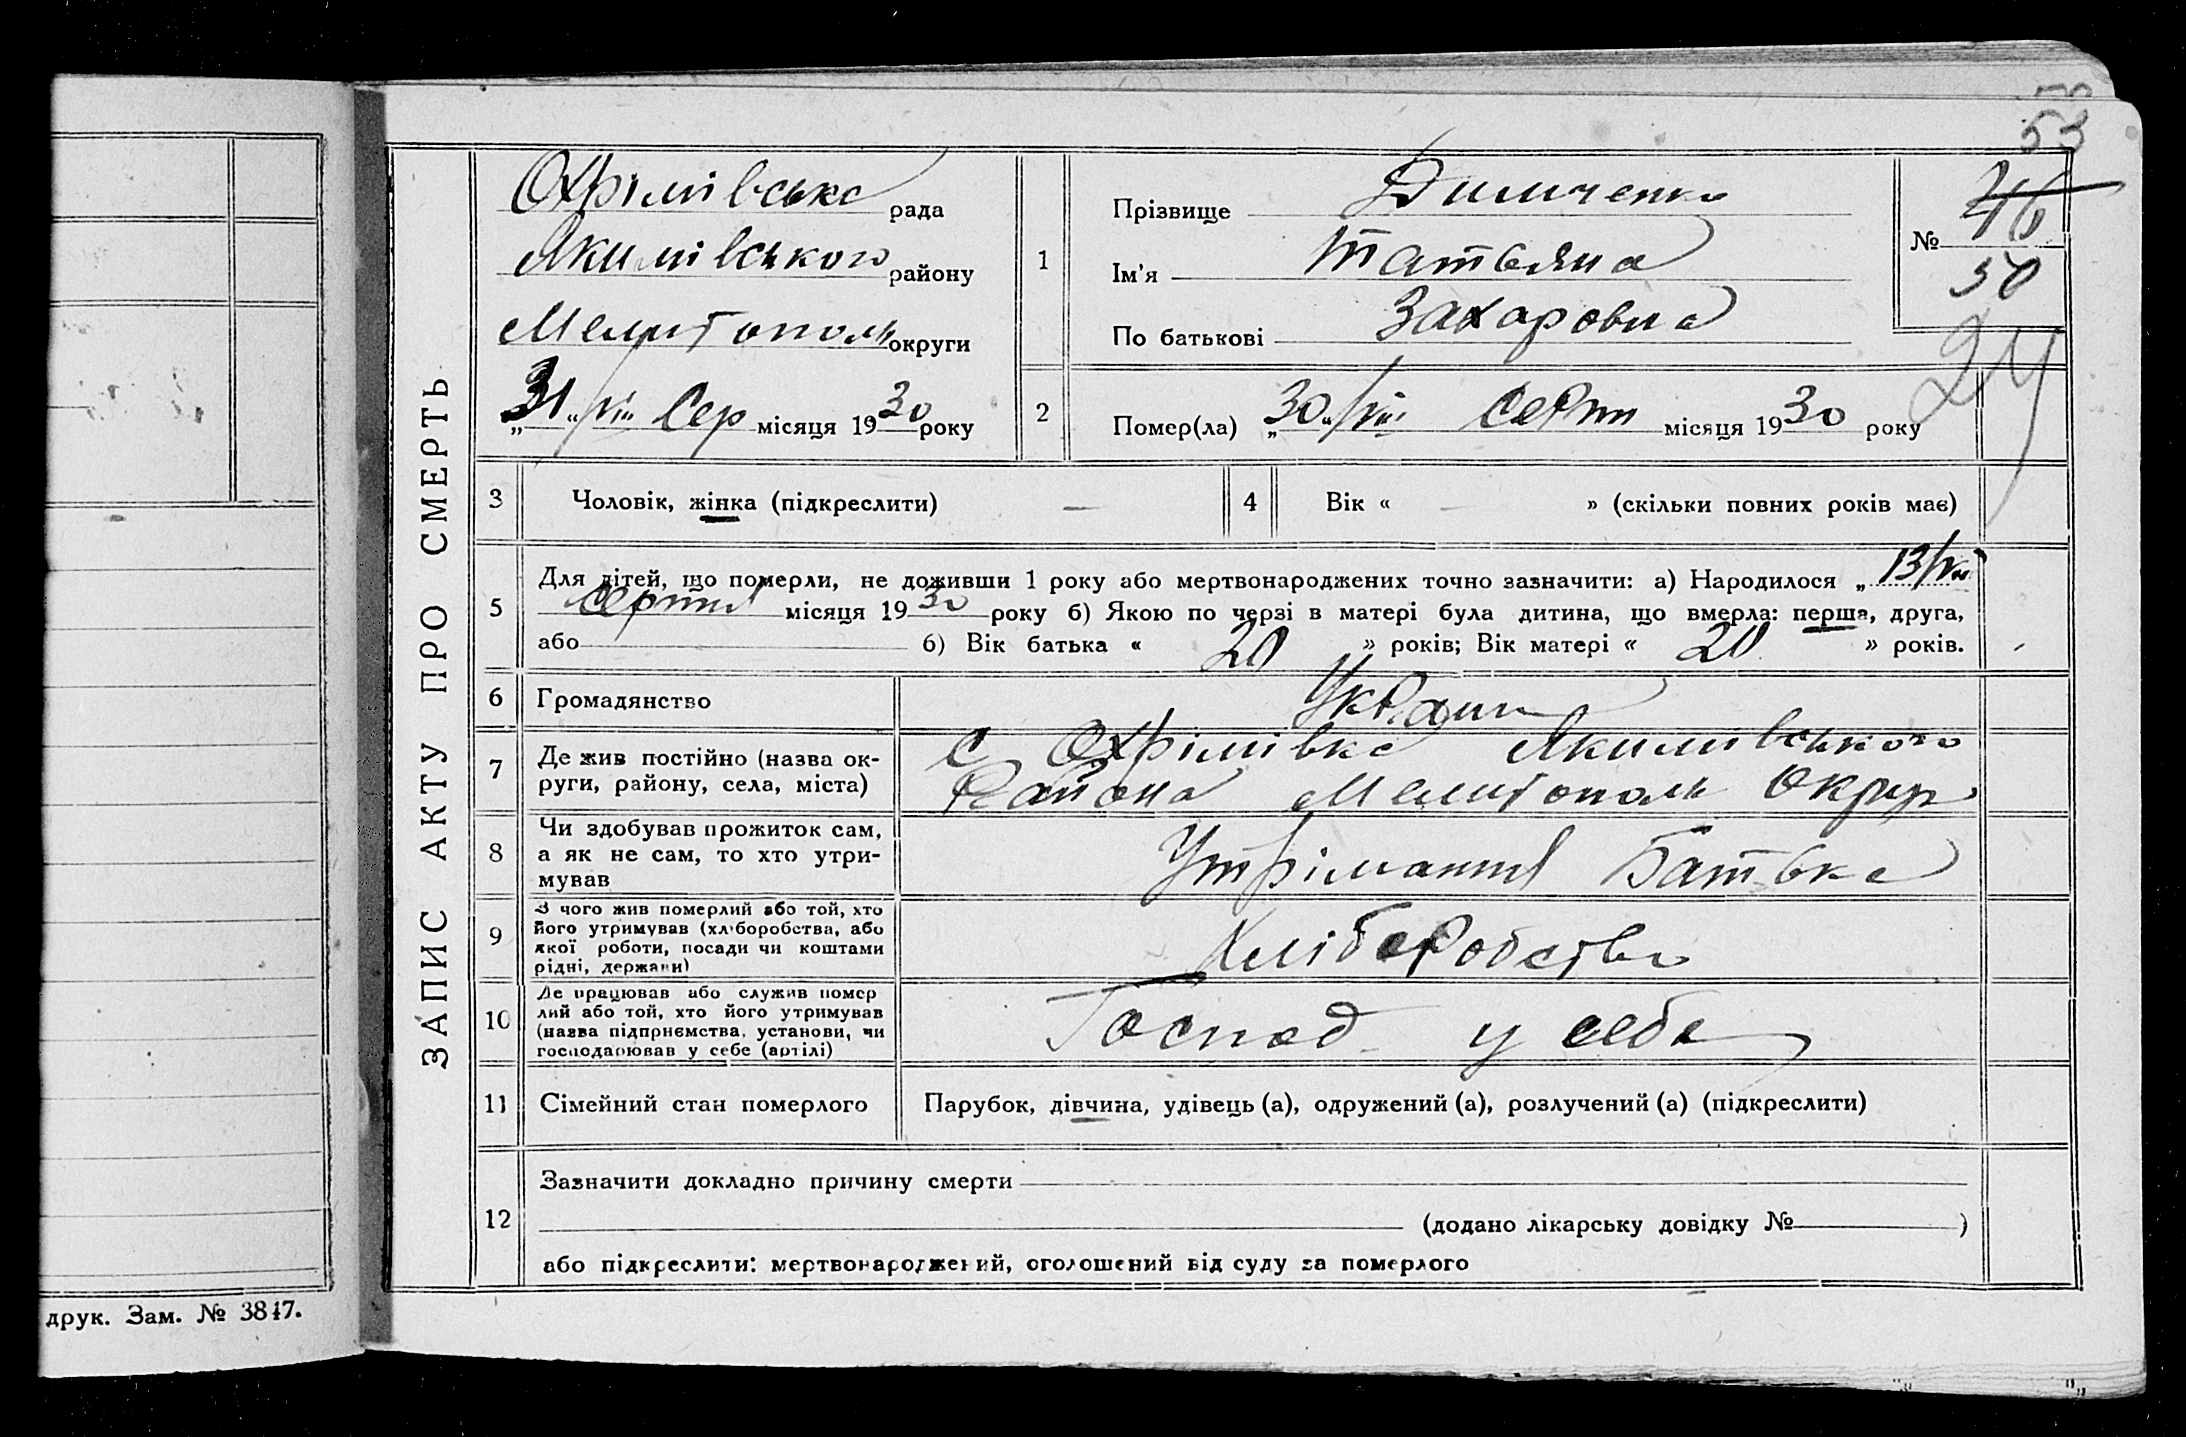 53
ЗАПИС АКТУ ПРО СМЕРТЬ
Охрімівська рада
Якимівського району
Мелитополь округи
„31“/VIII Сер місяця 1930 року
1
Прізвище Димченко
Ім'я Татьяна
По батькові Захаровна
№ 46
50
24
2
Помер(ла) „30“/VIII Серпн місяця 1930 року
3 Чоловік, жінка (підкреслити) —
4 Вік « — » (скільки повних років має)
5
Для дітей, що померли, не доживши 1 року або мертвонароджених точно зазначити: а) Народилося „13/VIII
Серпня місяця 1930 року б) Якою по черзі в матері була дитина, що вмерла: перша, друга,
або б) Вік батька « 20 » років; Вік матері « 20 » років.
6 Громадянство Україн
7 Де жив постійно (назва ок-
руги, району, села, міста)
с Охрімівка Якимівського
Района Мелитополь Округ
8 Чи здобував прожиток сам,
а як не сам, то хто утри-
мував
Утрімання Батька
9 З чого жив померлий або той, хто
його утримував (хліборобства, або
якої роботи, посади чи коштами
рідні, держави)
Хліборобство
10 Де працював або служив помер
лий або той, хто його утримував
(назва підприємства, установи, чи
господарював у себе (артілі)
Господ у себе
11 Сімейний стан померлого Парубок, дівчина, удівець (а), одружений (а), розлучений (а) (підкреслити)
12
Зазначити докладно причину смерти
(додано лікарську довідку № )
або підкреслити: мертвонароджений, оголошений від суду за померлого
друк. Зам. № 3847.